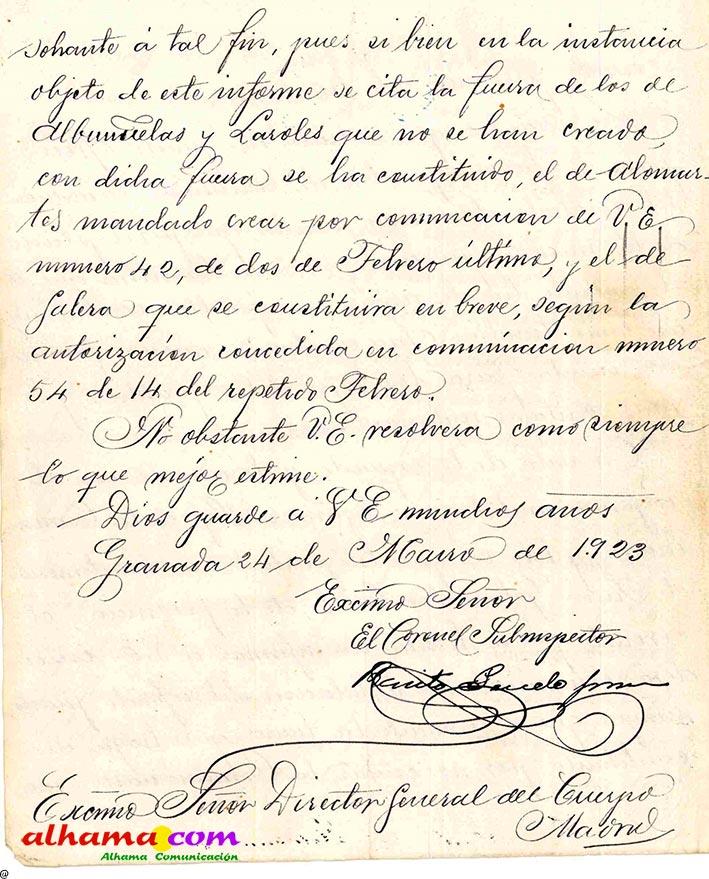 sobrante á tal fin, pues si bien en la instancia
objeto de este informe se cita la fuerza de los de
Albuñuelas y Laroles que no se han creado,
con dicha fuerza se ha constituido, el de Alomar-
tes mandado crear por comunicacion de V.E.
numero 42, de dos de Febrero último, y el de
Galera que se constituira en breve, según la
autorización concedida en comunicacion numero
54 de 14 del repetido Febrero.
No obstante V.E. resolvera como siempre
lo que mejor estime.
Dios guarde á V E muchos años
Granada 24 de Marzo de 1.923
Excmo Señor
El Coronel Subinspector
Benito
Excmo Señor Director General del Cuerpo
Madrid
alhama.com
Alhama Comunicación
@